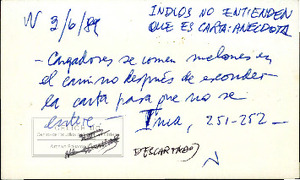 N 3/6/89
INDIOS NO ENTIENDEN
QUE ES CARTA: ANECDOTA
- Cargadores se comen melones en
el camino después de esconder
la carta para que no se
entere - Inca, 251-252 -
DESCARTADO
N